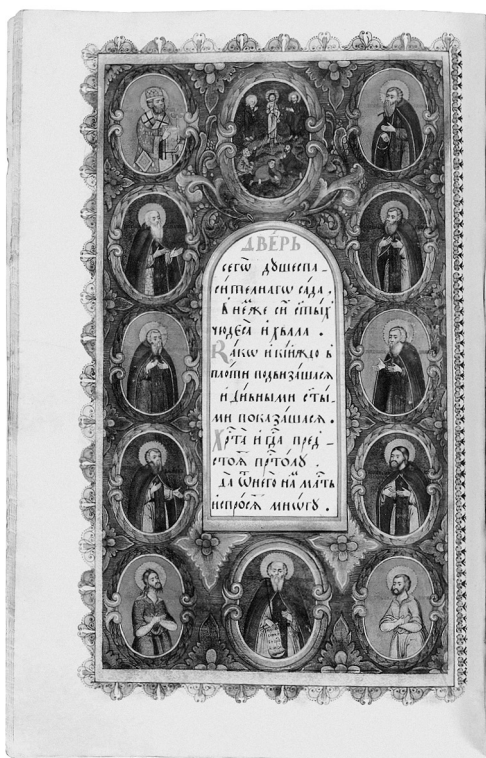 ДВЕ́РЬ
сегѡ̀ дꙋшеспа-
си́телнагѡ са́да.
В не́мже сіи ст҃ы́хъ
чюдеса̀ и҆ хвала̀.
Ꙗ҆́кѡ и҆ кі́йждо в
пло́ти подвиза́шася
и҆ ди́вными ст҃ы́-
ми показа́шася.
Хрⷭ҇та̀ и҆ гдⷭ҇а пред-
стоѧ̀ прⷭ҇то́лꙋ.
Да ѿнегѡ̀ на́м мл҃ть
и҆спро́сѧ мно́гꙋ.